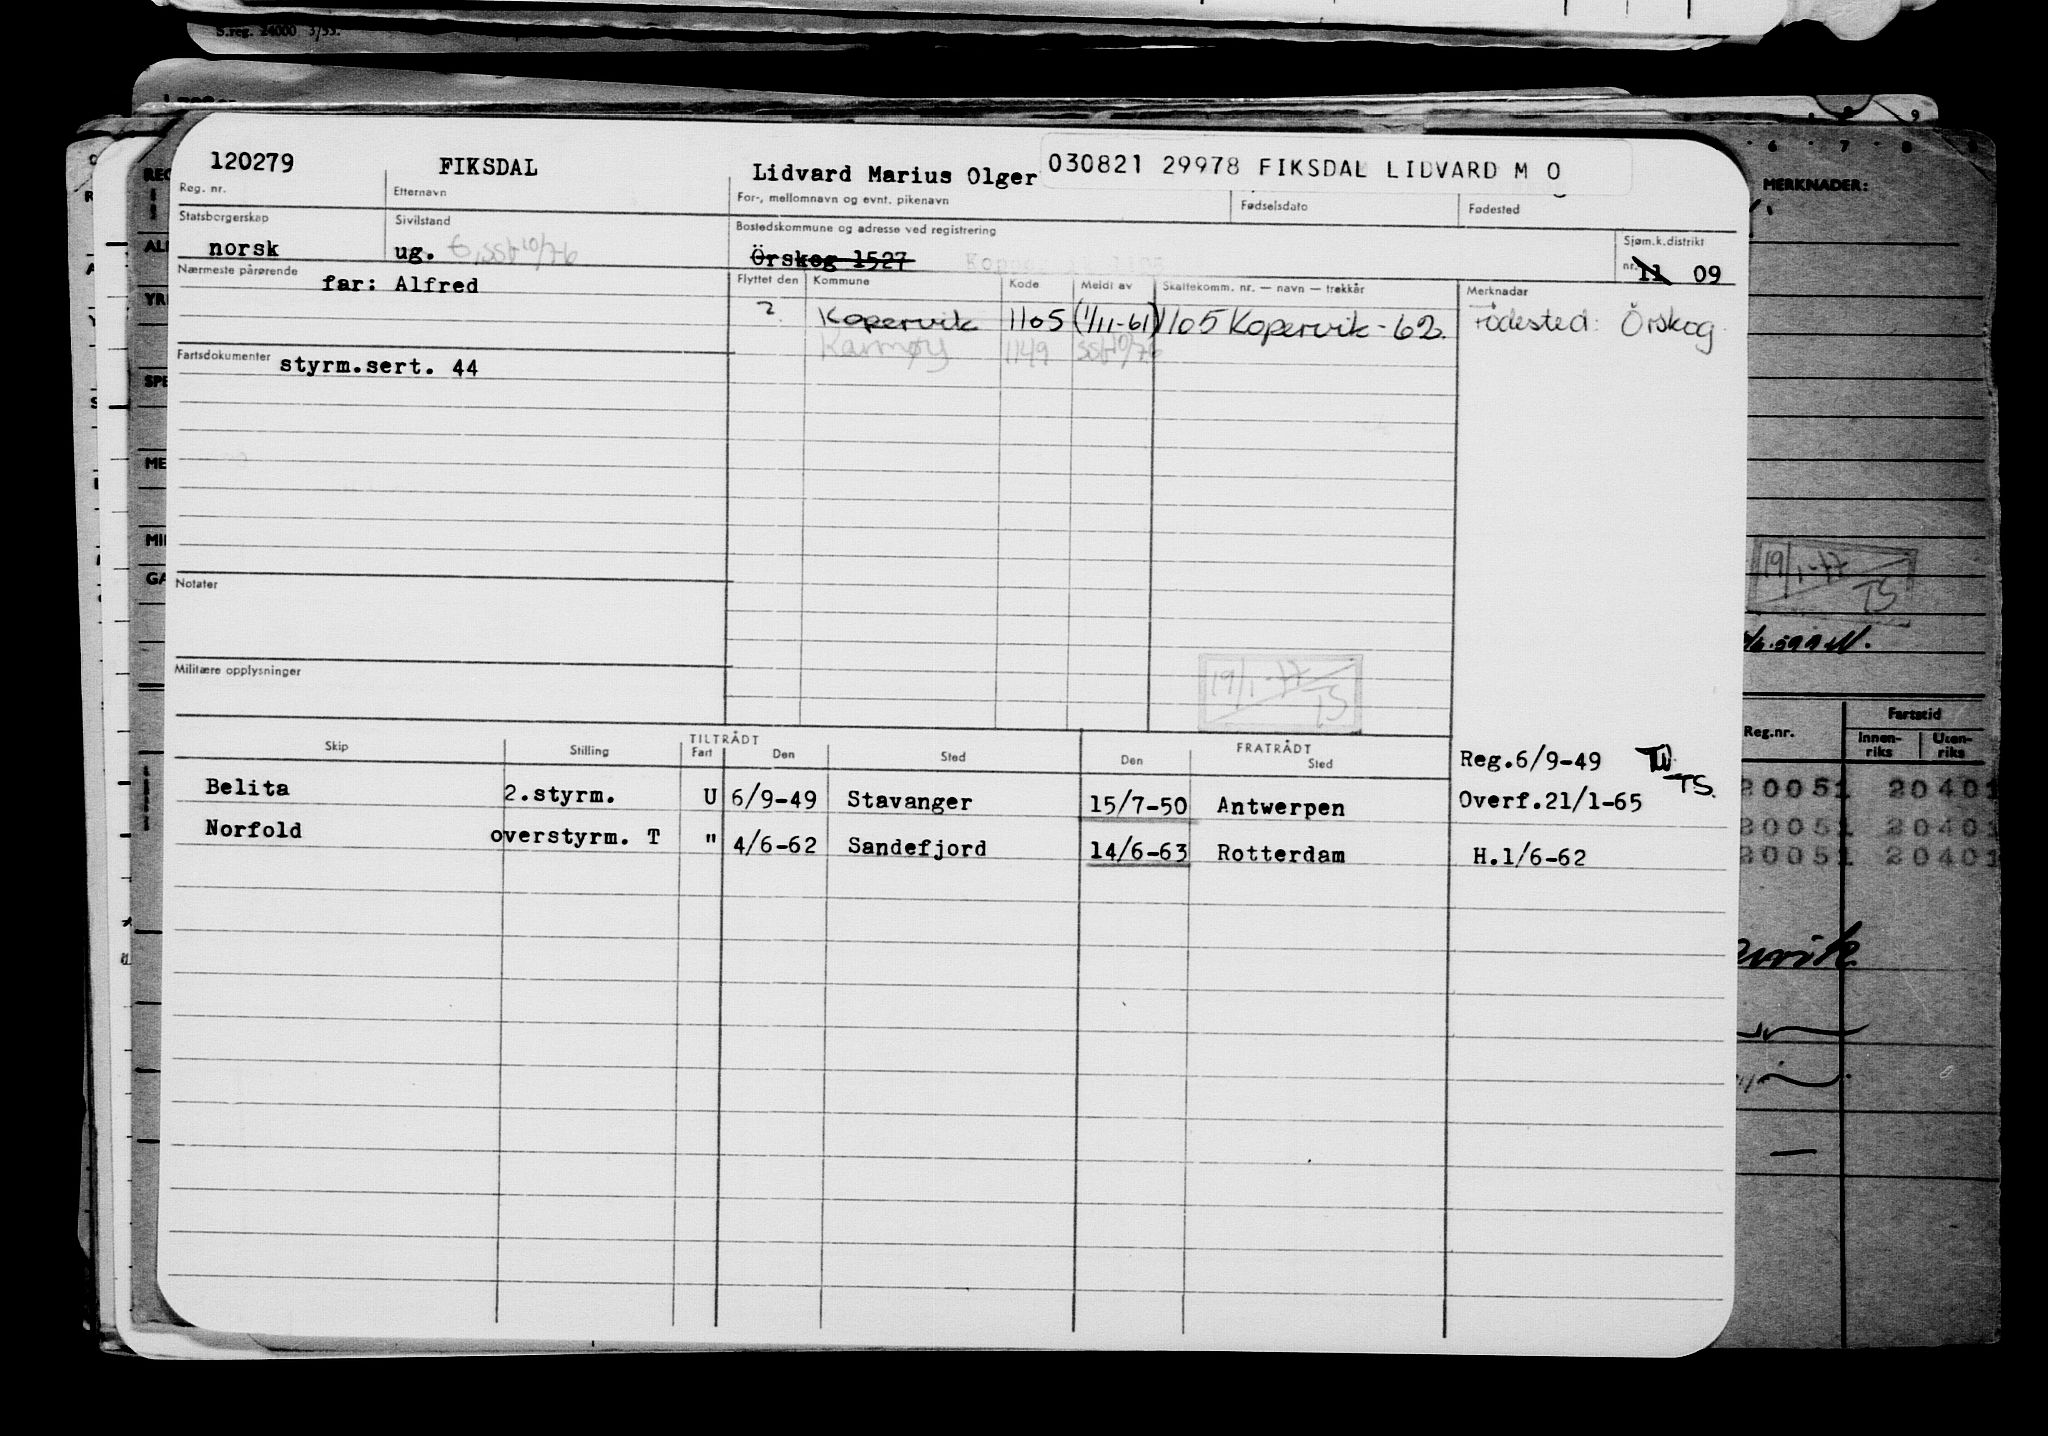 S.reg. 24000 3/55.
120279 FIKSDAL Lidvard Marius Olger 030821 29978 FIKSDAL LIDVARD M O
Reg. nr. Etternavn For-, mellomnavn og evnt. pikenavn Fødselsdato Fødested
Statsborgerskap Sivilstand Bostedskommune og adresse ved registrering Sjøm.k.distrikt
norsk ug. G, sst 10/76 Örskog 1527 nr. 11 09
Nærmeste pårørende Flyttet den Kommune Kode Meldt av Skattekomm. nr. — navn — trekkår Merknader
far: Alfred
? Kopervik 1105 (1/11-61) 1105 Kopervik - 62. Fødested: Örskog
Karmøy 1149 sst 10/76
Fartsdokumenter styrm.sert. 44
Notater
Militære opplysninger
19/1-77 TS
Skip Stilling TILTRÅDT Fart Den Sted FRATRÅDT Den Sted
Reg.6/9-49
Belita 2.styrm. U 6/9-49 Stavanger 15/7-50 Antwerpen Overf.21/1-65 TS.
Norfold overstyrm. T " 4/6-62 Sandefjord 14/6-63 Rotterdam H.1/6-62
6 7 8 9
MERKNADER:
19/1-77 TS
Reg.nr. Fartstid
Innen-riks Uten-riks
20051 20401
20051 20401
20051 20401